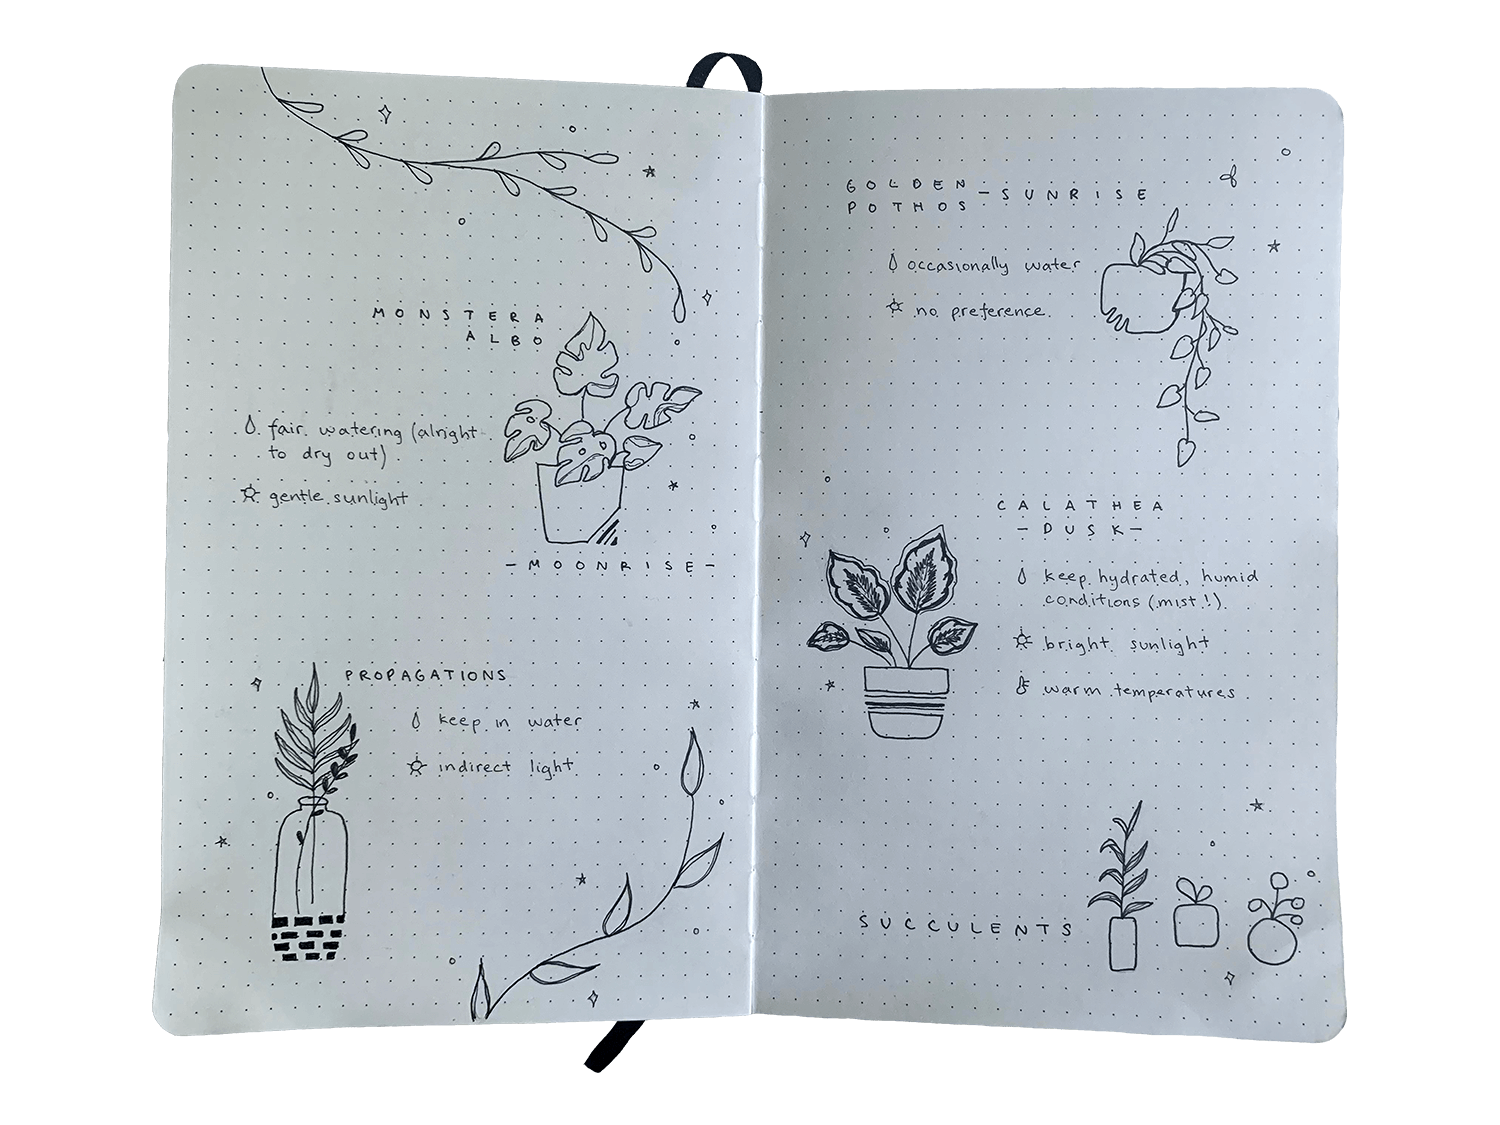 MONSTERA
ALBO
fair watering (alright
to dry out)
gentle sunlight
-MOONRISE-
PROPAGATIONS
keep in water
indirect light
GOLDEN
POTHOS -SUNRISE
occasionally water
no preference
CALATHEA
-DUSK-
keep hydrated, humid
conditions (mist!)
bright sunlight
warm temperatures
SUCCULENTS